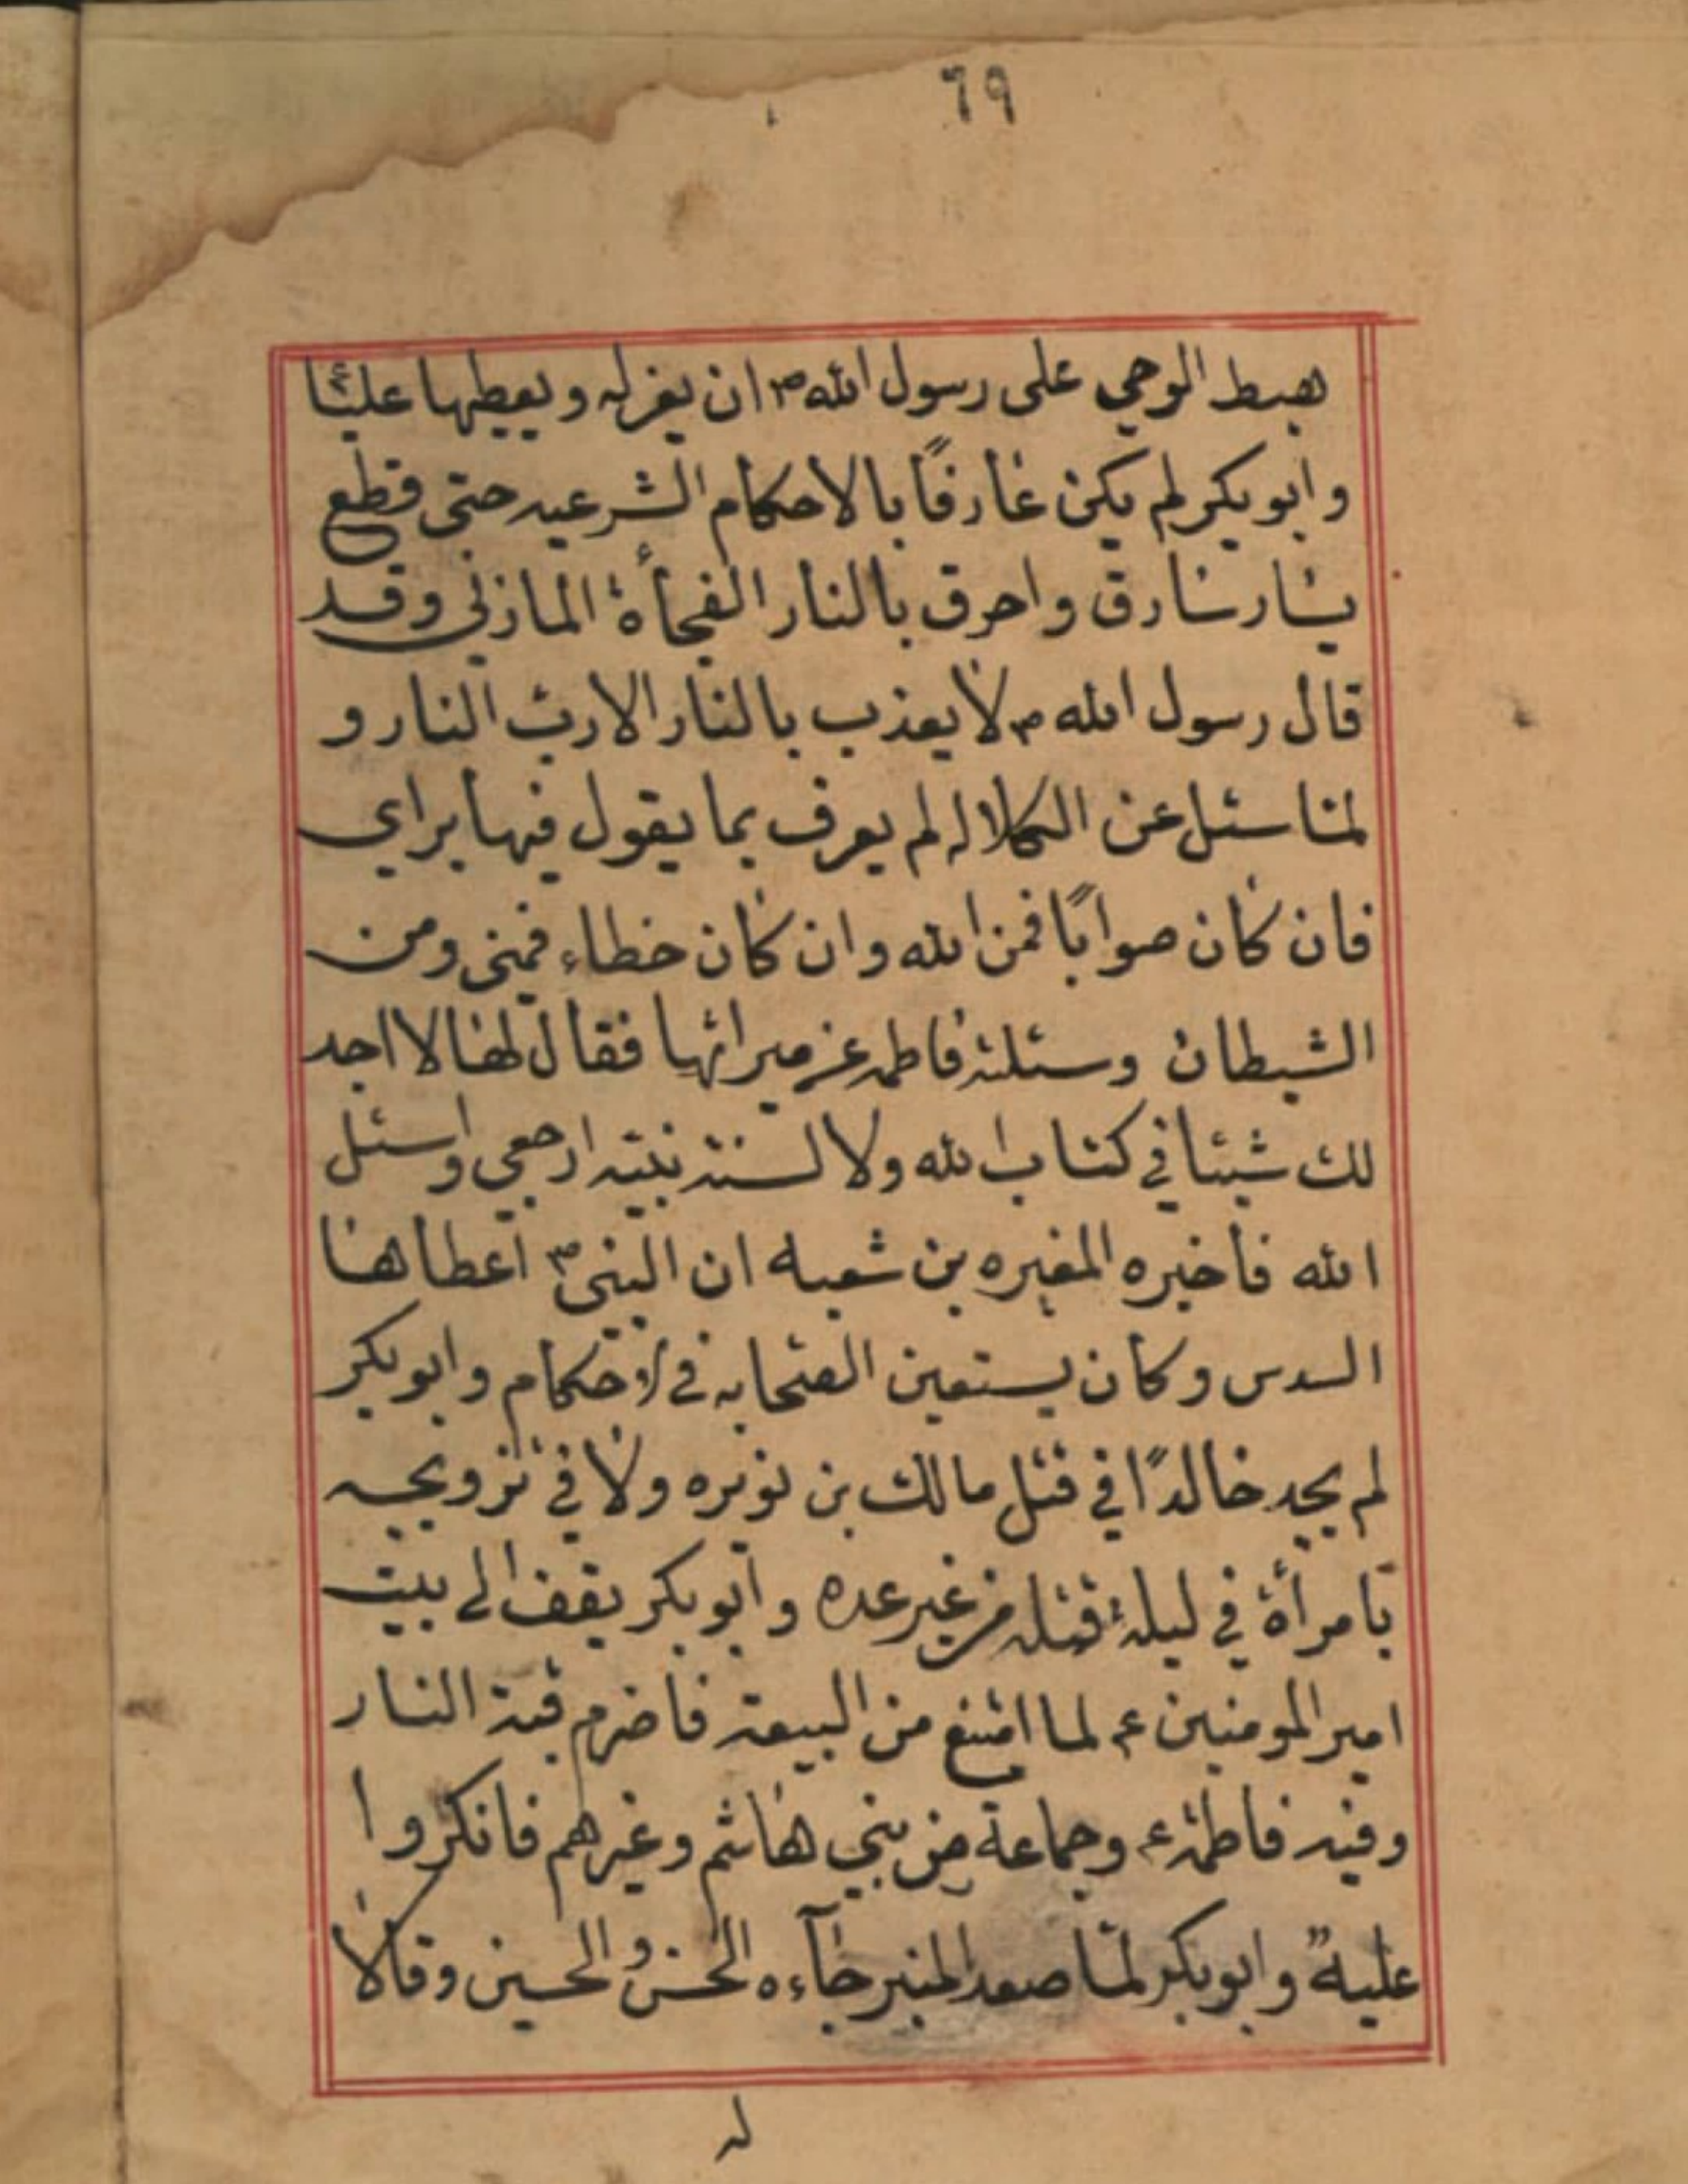 ٦٩
هبط الوحي على رسول الله ص ان يعزله ويعطيها عليًا
وابوبكر لم يكن عارفًا بالاحكام الشرعيه حتى قطع
يسار سارق واحرق بالنار الفجأة المازني وقد
قال رسول الله ص لا يعذب بالنار الا رب النار و
لما سئل عن الكلاله لم يعرف بما يقول فيها براي
فان كان صوابًا فمن الله وان كان خطاء فمنى ومن
الشيطان وسئلته فاطمه عن ميراثها فقال لها لا اجد
لك شيئا في كتاب الله ولا لسنته نبيه ارجعي واسئل
الله فاخبره المغيره بن شعبه ان النبى ص اعطاها
السدس وكان يستعين الصحابه في الاحكام وابوبكر
لم يجد خالدًا في قتل مالك بن نويره ولا في تزويجه
بامرأة في ليلة قتله من غير عده وابوبكر يقف الى بيت
امير المومنين ع لما امتنع من البيعة فاضرم فيه النار
وفيه فاطمة ع وجماعة من بني هاشم وغيرهم فانكروا
عليه وابوبكر لما صعد المنبر جآءه الحسن والحسين وقالا
له